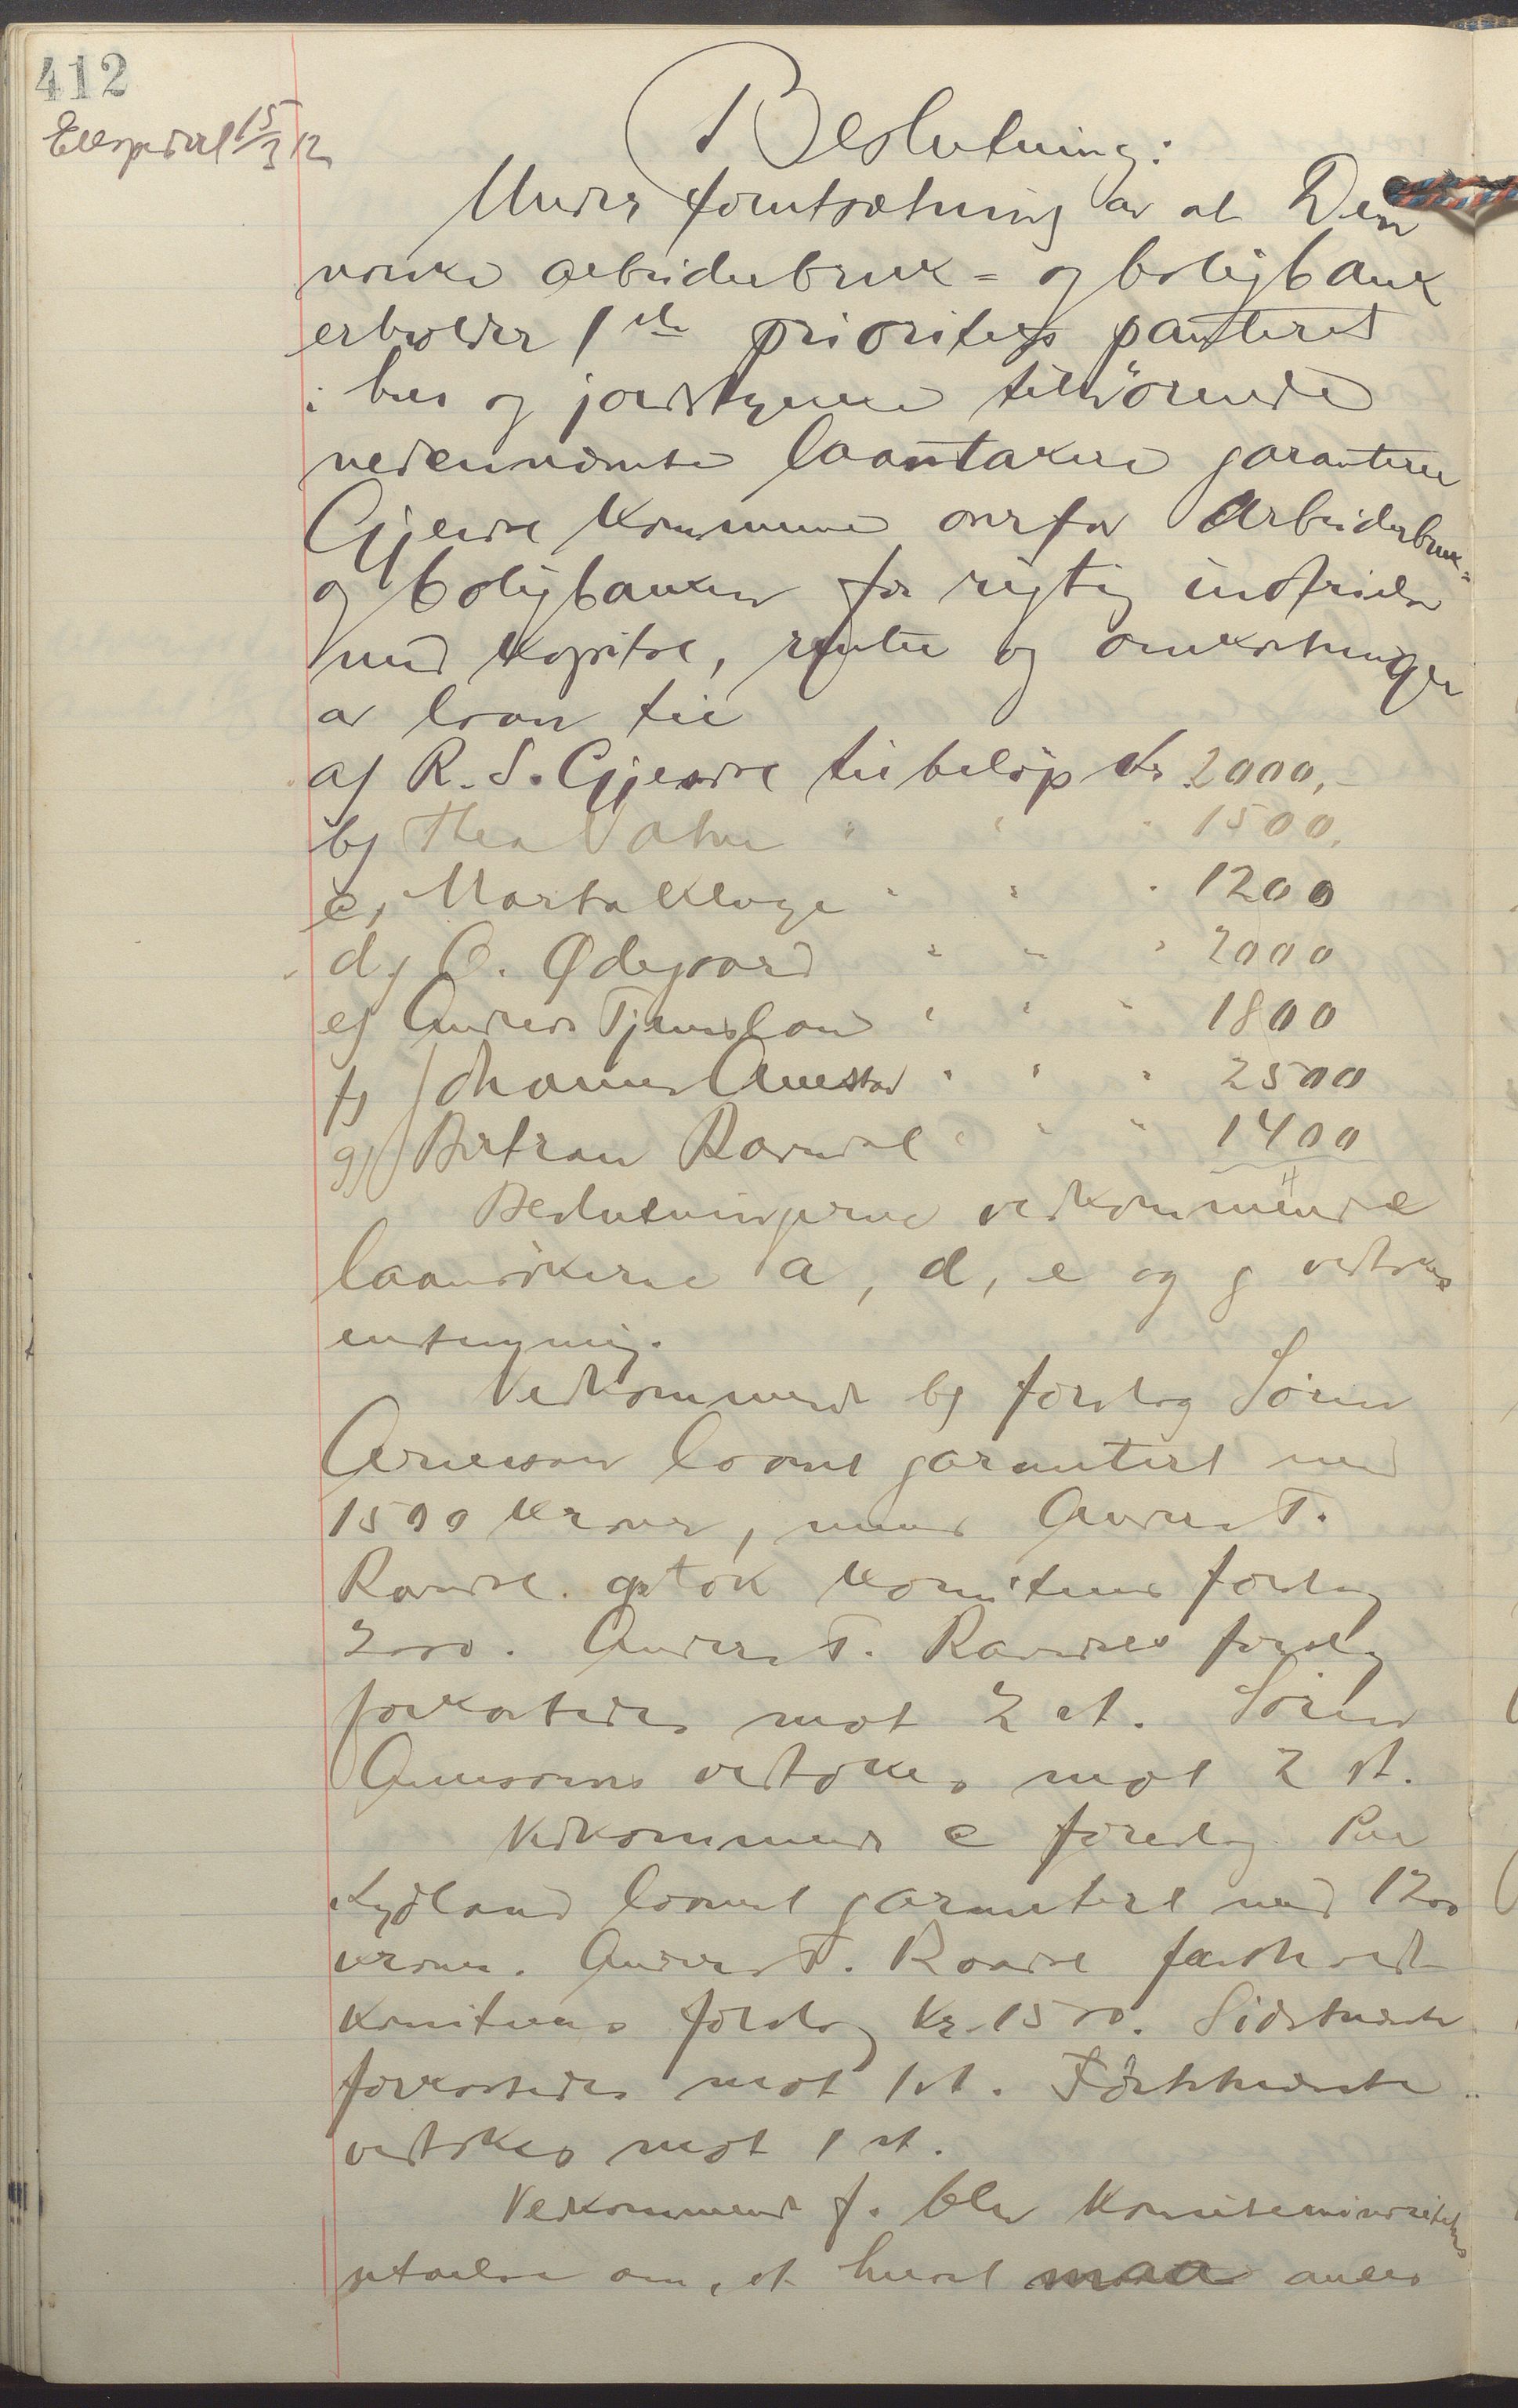 412
Ekspedert 15/3 12
Beslutning:
Under forutsætning av at Den
norske arbeiderbruk- og boligbank
erholder 1ste prioritets panteret
i hus og jordstykkene tilhörende
nedennævnte laantakere garanterer
Gjesdal kommune overfor Arbeiderbruk-
og boligbanken for rigtig indfrielse
med kapital, renter og omkostninger
av laan til
a) R. S. Gjesdal til beløp kr. 2000,-
b) Thea Vatne " " " 1500,
c, Marta Kluge " " " 1200
d) O. Ødegaard " " " 2000
e) Andreas Tjensland " " " 1800
f) Johannes Auestad " " " 2500
g) Bertran Ravndal " " " 1400
Beslutningerne vedkommende
laansökerne a, d, e og g vedtokes
enstemmig.
Vedkommende b) foreslog Sören
Arneson laanet garantert med
1500 kroner, mens Anders T.
Ravndal optok komiteens forslag
2000. Anders T. Ravndals forslag
forkastedes mot 2 st. Sören
Arnesons vedtokes mot 2 st.
Vedkommende c foreslog Per
Kydland laanet garantert med 1200
kroner. Anders T. Ravndal fastholdt
komiteens forslag kr. 1500. Sidstnævnte
forkastedes mot 1 st. Förstnævnte
vedtokes mot 1 st.
Vedkommende f. blev komiteminoritetens
uttalelse om, at huset maa anses